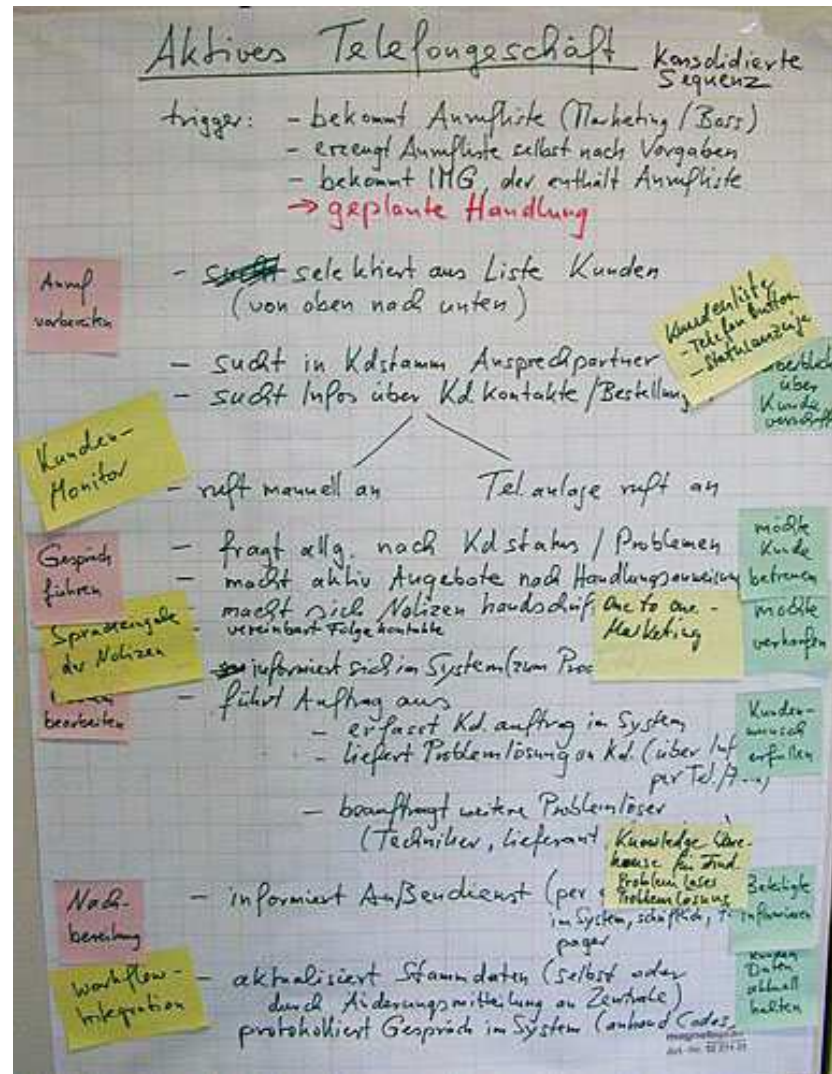 Aktives Telefongeschäft
Konsolidierte
Sequenz
trigger: - bekommt Anrufliste (Marketing / Boss)
- erzeugt Anrufliste selbst nach Vorgaben
- bekommt IMG, der enthält Anrufliste
→ geplante Handlung
Anruf
vorbereiten
- sucht selektiert aus Liste Kunden
(von oben nach unten)
Kundenliste
- Telefon Button
- Statusanzeige
- sucht in Kdstamm Ansprechpartner
- sucht Infos über Kd. kontakte / Bestellung
überblick
über
Kunde
verschaff
Kunden-
Monitor
- ruft manuell an Tel. anlage ruft an
Gespräch
führen
- fragt allg. nach Kdstatus / Problemen
- macht aktiv Angebote nach Handlungsanweisung
- macht sich Notizen handschrif
- vereinbart Folgekontakte
möchte
Kunde
betreuen
One to one -
Marketing
möchte
verkaufen
Spracheingabe
der Notizen
informiert sich im System (zum
bearbeiten
- führt Auftrag aus
- erfasst Kd. auftrag im System
- liefert Problemlösung an Kd. (über Inf
per Tel. /
Kunden-
wunsch
erfüllen
- beauftragt weitere Problemlöser
(Techniker, Lieferant,
Knowledge Ware-
house für
Problem
Problemlösung
Nach-
bereitung
- informiert Außendienst (per
im System, schriftlich,
pager
Beteiligte
informieren
Workflow-
Integration
- aktualisiert Stammdaten (selbst oder
durch Änderungsmitteilung an Zentrale)
protokolliert Gespräch im System (anhand Codes,
Daten
aktuell
halten